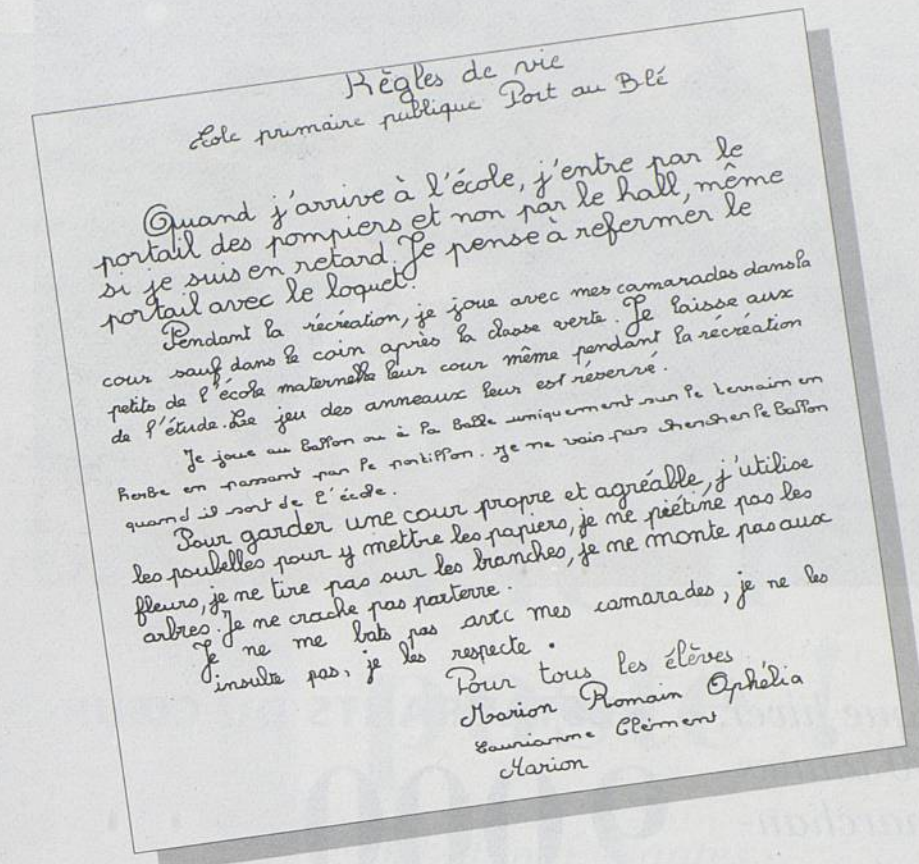 Règles de vie
École primaire publique Port au Blé
Quand j'arrive à l'école, j'entre par le
portail des pompiers et non par le hall, même
si je suis en retard. Je pense à refermer le
portail avec le loquet.
Pendant la récréation, je joue avec mes camarades dans la
cour sauf dans le coin après la classe verte. Je laisse aux
petits de l'école maternelle leur cour même pendant la récréation
de l'étude. Le jeu des anneaux leur est réservé.
Je joue au ballon ou à la balle uniquement sur le terrain en
herbe en passant par le portillon. Je ne vais pas chercher le ballon
quand il sort de l'école.
Pour garder une cour propre et agréable, j'utilise
les poubelles pour y mettre les papiers, je ne piétine pas les
fleurs, je ne tire pas sur les branches, je ne monte pas aux
arbres. Je ne crache pas parterre.
Je ne me bats pas avec mes camarades, je ne les
insulte pas, je les respecte.
Pour tous les élèves
Marion Romain Ophélia
Laurianne Clément
Marion